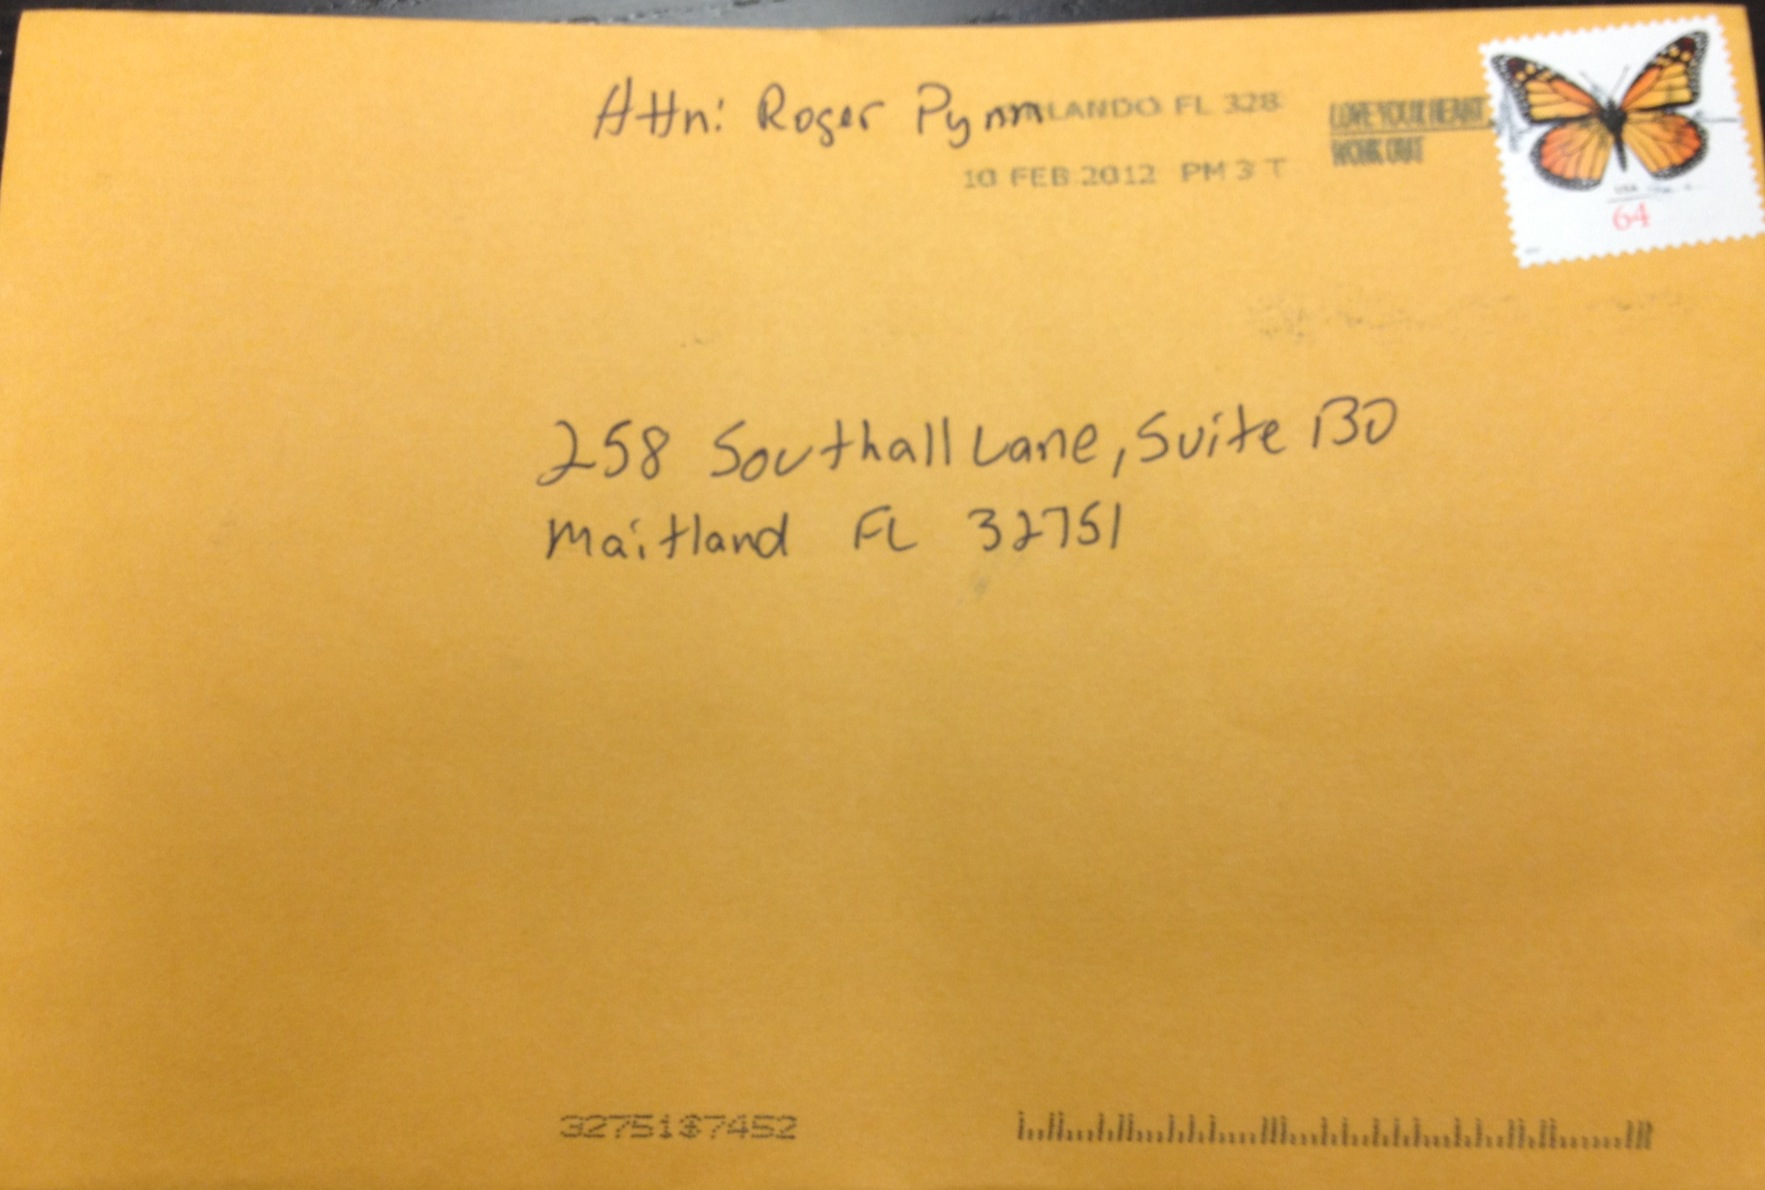 Attn: Roger Pynn
ORLANDO FL 328
10 FEB 2012 PM 3 T
LOVE YOUR HEART,
WORK OUT
USA
64
258 Southall Lane, Suite 130
Maitland FL 32751
32751$7452